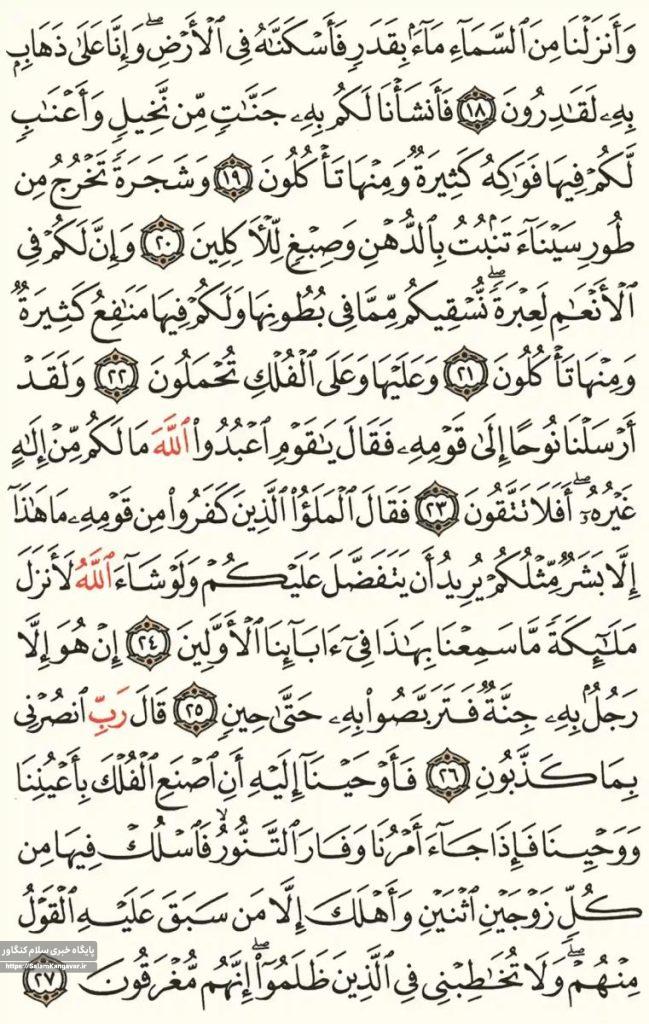 وَأَنزَلْنَا مِنَ ٱلسَّمَآءِ مَآءًۢ بِقَدَرٍ فَأَسْكَنَّٰهُ فِى ٱلْأَرْضِ ۖ وَإِنَّا عَلَىٰ ذَهَابٍۭ
بِهِۦ لَقَٰدِرُونَ ١٨ فَأَنشَأْنَا لَكُم بِهِۦ جَنَّٰتٍ مِّن نَّخِيلٍ وَأَعْنَٰبٍ
لَّكُمْ فِيهَا فَوَٰكِهُ كَثِيرَةٌ وَمِنْهَا تَأْكُلُونَ ١٩ وَشَجَرَةً تَخْرُجُ مِن
طُورِ سَيْنَآءَ تَنۢبُتُ بِٱلدُّهْنِ وَصِبْغٍ لِّلْـَٔاكِلِينَ ٢٠ وَإِنَّ لَكُمْ فِى
ٱلْأَنْعَٰمِ لَعِبْرَةً ۖ نُّسْقِيكُم مِّمَّا فِى بُطُونِهَا وَلَكُمْ فِيهَا مَنَٰفِعُ كَثِيرَةٌ
وَمِنْهَا تَأْكُلُونَ ٢١ وَعَلَيْهَا وَعَلَى ٱلْفُلْكِ تُحْمَلُونَ ٢٢ وَلَقَدْ
أَرْسَلْنَا نُوحًا إِلَىٰ قَوْمِهِۦ فَقَالَ يَٰقَوْمِ ٱعْبُدُوا۟ ٱللَّهَ مَا لَكُم مِّنْ إِلَٰهٍ
غَيْرُهُۥٓ ۖ أَفَلَا تَتَّقُونَ ٢٣ فَقَالَ ٱلْمَلَؤُا۟ ٱلَّذِينَ كَفَرُوا۟ مِن قَوْمِهِۦ مَا هَٰذَآ
إِلَّا بَشَرٌ مِّثْلُكُمْ يُرِيدُ أَن يَتَفَضَّلَ عَلَيْكُمْ وَلَوْ شَآءَ ٱللَّهُ لَأَنزَلَ
مَلَٰٓئِكَةً مَّا سَمِعْنَا بِهَٰذَا فِىٓ ءَابَآئِنَا ٱلْأَوَّلِينَ ٢٤ إِنْ هُوَ إِلَّا
رَجُلٌۢ بِهِۦ جِنَّةٌ فَتَرَبَّصُوا۟ بِهِۦ حَتَّىٰ حِينٍ ٢٥ قَالَ رَبِّ ٱنصُرْنِى
بِمَا كَذَّبُونِ ٢٦ فَأَوْحَيْنَآ إِلَيْهِ أَنِ ٱصْنَعِ ٱلْفُلْكَ بِأَعْيُنِنَا
وَوَحْيِنَا فَإِذَا جَآءَ أَمْرُنَا وَفَارَ ٱلتَّنُّورُ ۙ فَٱسْلُكْ فِيهَا مِن
كُلٍّ زَوْجَيْنِ ٱثْنَيْنِ وَأَهْلَكَ إِلَّا مَن سَبَقَ عَلَيْهِ ٱلْقَوْلُ
مِنْهُمْ ۖ وَلَا تُخَٰطِبْنِى فِى ٱلَّذِينَ ظَلَمُوٓا۟ ۖ إِنَّهُم مُّغْرَقُونَ ٢٧
پایگاه خبری سلام کنگاور
https://SalamKangavar.ir